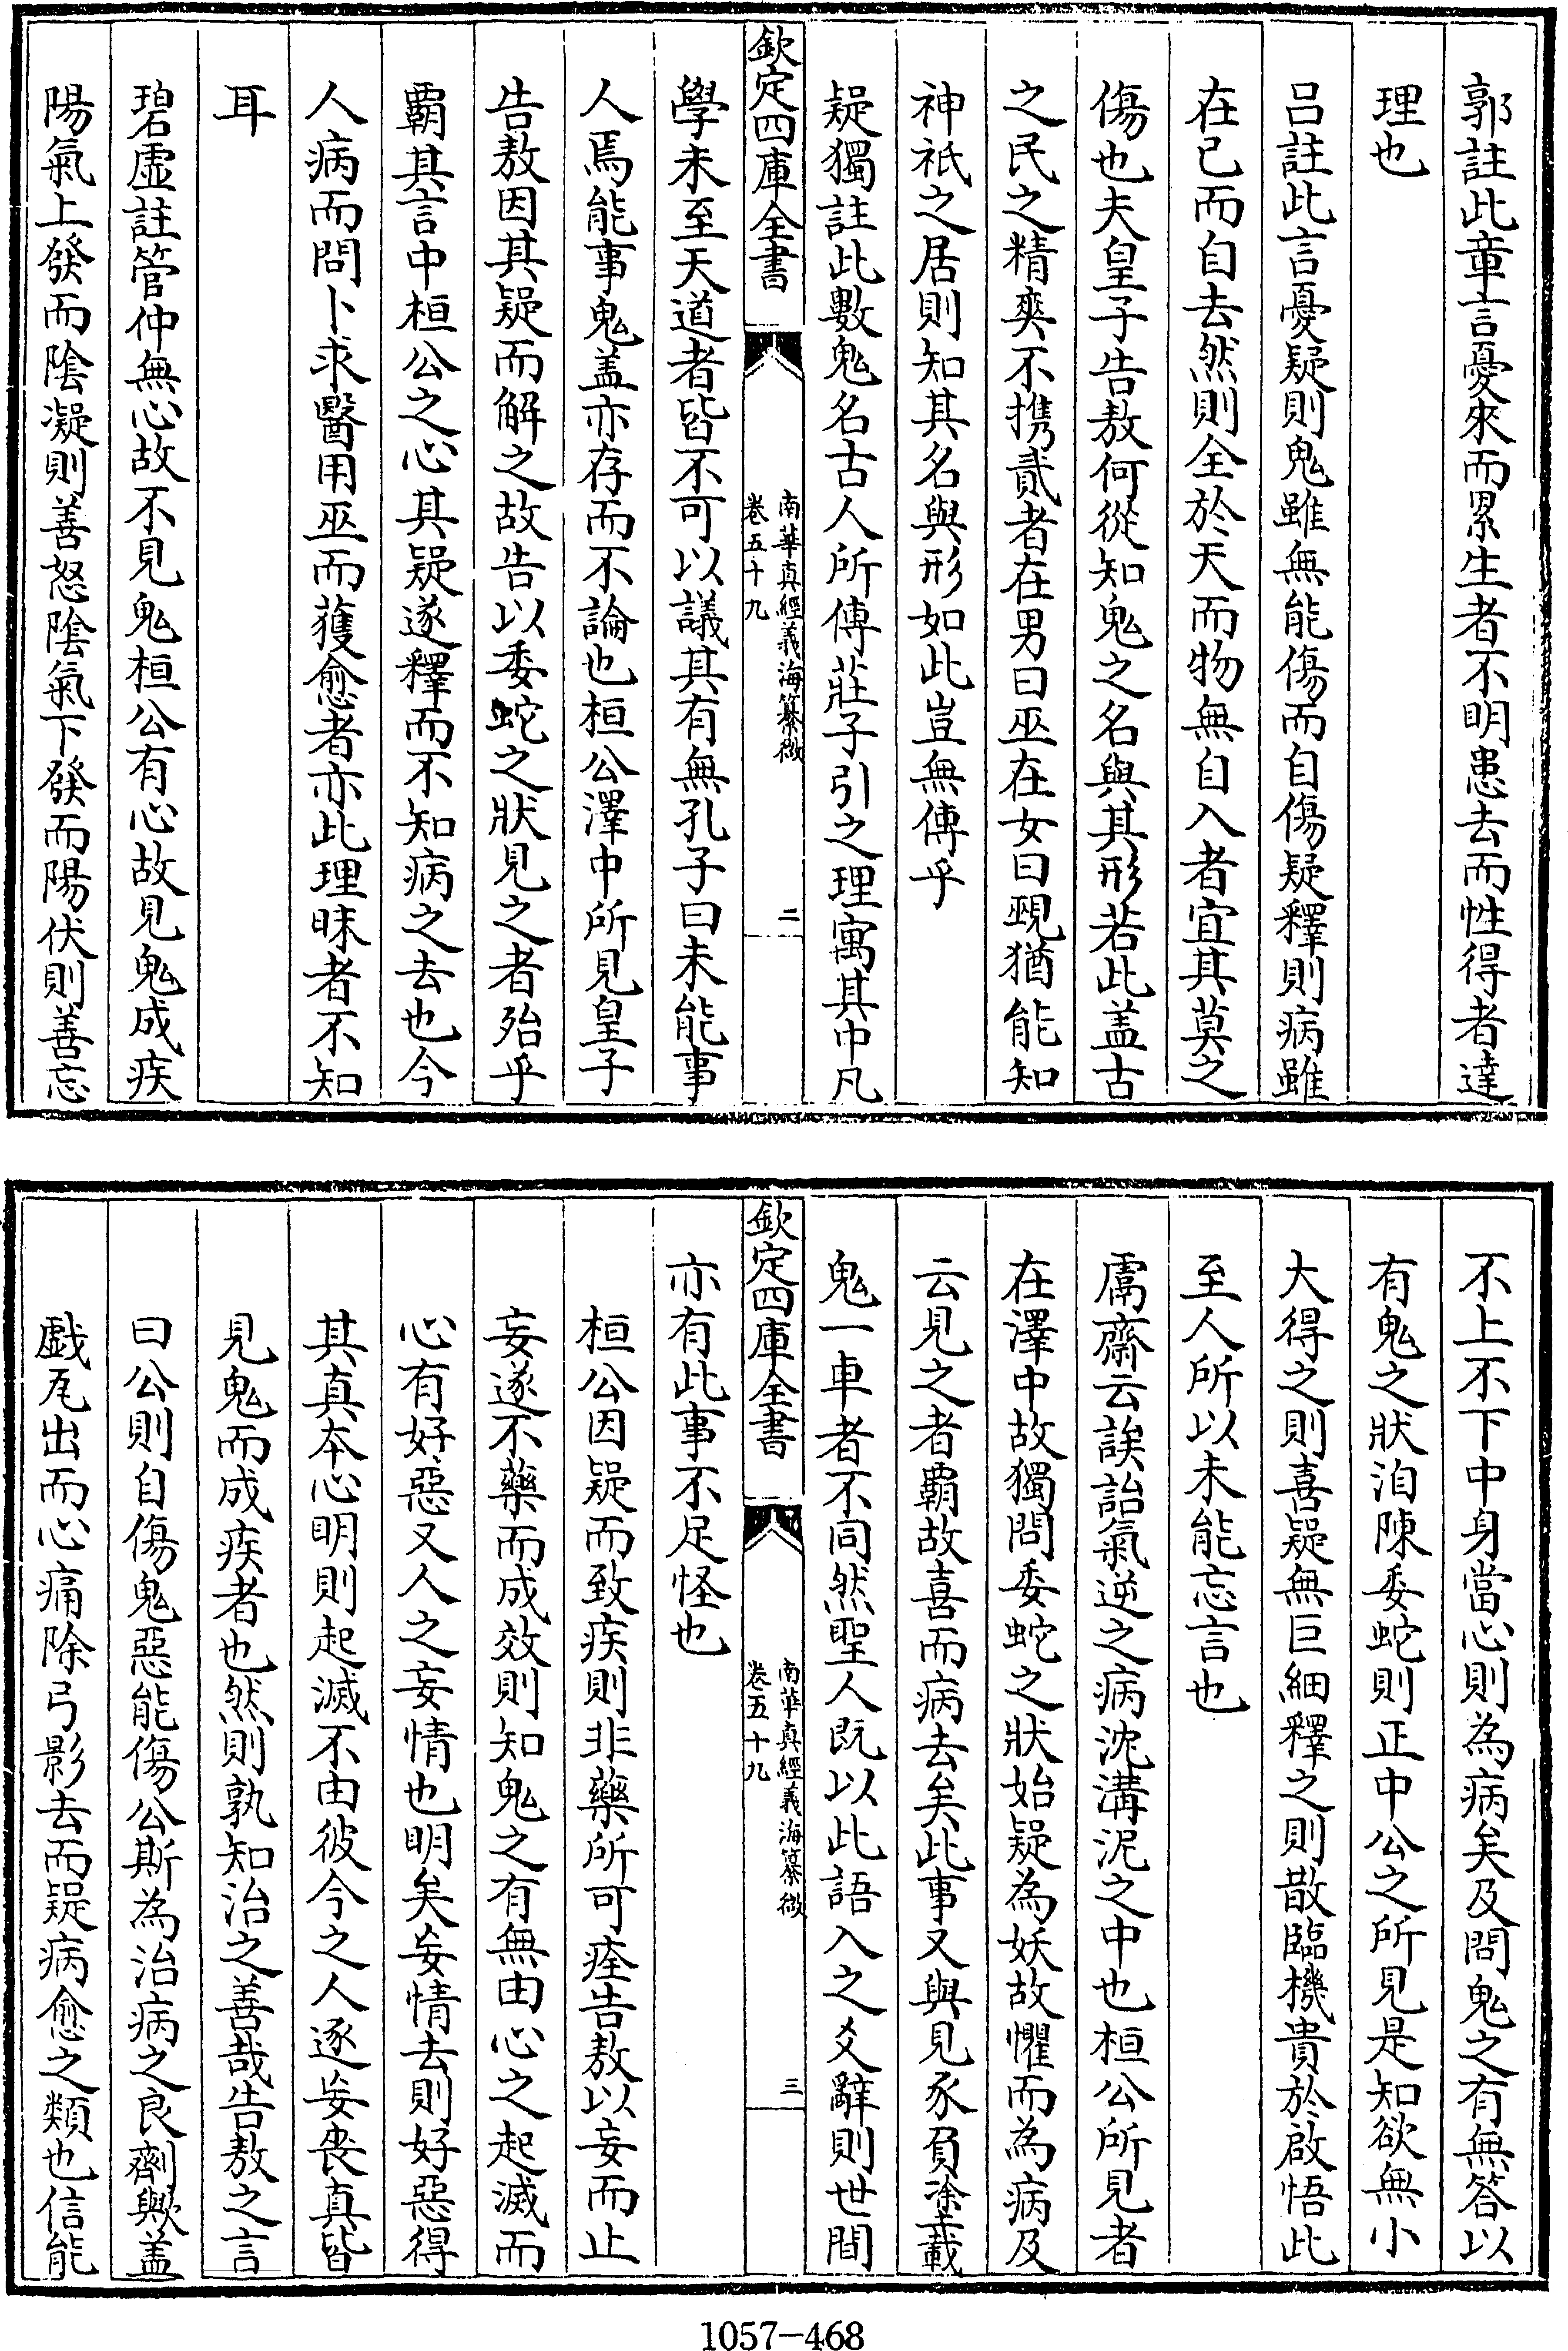 郭註此章言憂來而累生者不明患去而性得者達
理也
吕註此言憂疑則鬼雖無能傷而自傷疑釋則病雖
在已而自去然則全於天而物無自入者宜其莫之
傷也夫皇子告敖何從知鬼之名與其形若此盖古
之民之精爽不携貳者在男曰巫在女曰覡猶能知
神祇之居則知其名與形如此豈無傳乎
疑獨註此數鬼名古人所傳莊子引之理寓其中凡
欽定四庫全書
南華真經義海纂微
卷五十九
二
學未至天道者皆不可以議其有無孔子曰未能事
人焉能事鬼盖亦存而不論也桓公澤中所見皇子
告敖因其疑而解之故告以委蛇之狀見之者殆乎
霸其言中桓公之心其疑遂釋而不知病之去也今
人病而問卜求醫用巫而獲愈者亦此理昧者不知
耳
碧虚註管仲無心故不見鬼桓公有心故見鬼成疾
陽氣上發而隂凝則善怒隂氣下發而陽伏則善忘
不上不下中身當心則為病矣及問鬼之有無答以
有鬼之狀洎陳委蛇則正中公之所見是知欲無小
大得之則喜疑無巨細釋之則散臨機貴於啟悟此
至人所以未能忘言也
鬳齋云誒詒氣逆之病沈溝泥之中也桓公所見者
在澤中故獨問委蛇之狀始疑為妖故懼而為病及
云見之者霸故喜而病去矣此事又與見豕負塗載
鬼一車者不同然聖人既以此語入之爻辭則世間
欽定四庫全書
南華真經義海纂微
卷五十九
三
亦有此事不足怪也
桓公因疑而致疾則非藥所可痊告敖以妄而止
妄遂不藥而成效則知鬼之有無由心之起滅而
心有好惡又人之妄情也明矣妄情去則好惡得
其真本心明則起滅不由彼今之人逐妄喪真皆
見鬼而成疾者也然則孰知治之善哉告敖之言
曰公則自傷鬼惡能傷公斯為治病之良劑歟盖
戯瓦出而心痛除弓影去而疑病愈之類也信能
1057-468